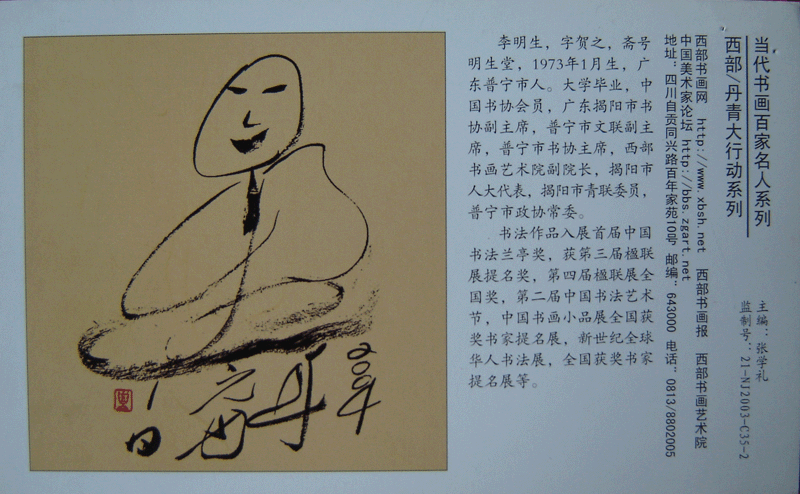 李明生，字贺之，斋号
明生堂，1973年1月生，广
东普宁市人。大学毕业，中
国书协会员，广东揭阳市书
协副主席，普宁市文联副主
席，普宁市书协主席，西部
书画艺术院副院长，揭阳市
人大代表，揭阳市青联委员，
普宁市政协常委。
书法作品入展首届中国
书法兰亭奖，获第三届楹联
展提名奖，第四届楹联展全
国奖，第二届中国书法艺术
节，中国书画小品展全国获
奖书家提名展，新世纪全球
华人书法展，全国获奖书家
提名展等。
当代书画百家名人系列
西部/丹青大行动系列
主编：张学礼
监制号：21-NJ2003-C35-2
西部书画网 http://www.xbsh.net 西部书画报 西部书画艺术院
中国美术家论坛 http://bbs.zgart.net
地址：四川自贡同兴路百年家苑10号 邮编：643000 电话：0813/8802005
2004